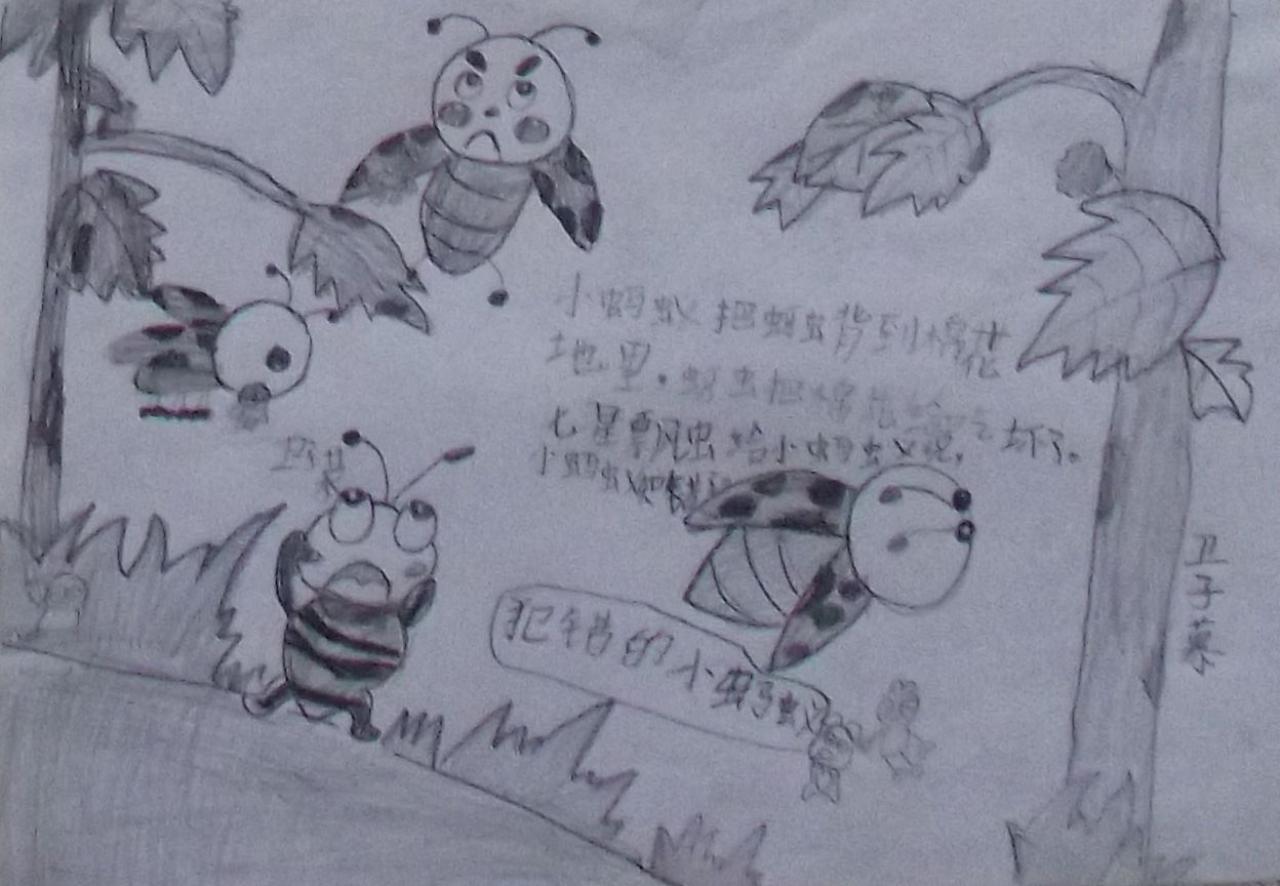 小蚂蚁把蚜虫背到棉花
地里.蚜虫把棉花给吃坏了。
七星瓢虫给小蚂蚁说,
小蚂蚁
犯错的小蚂蚁
卫子慕